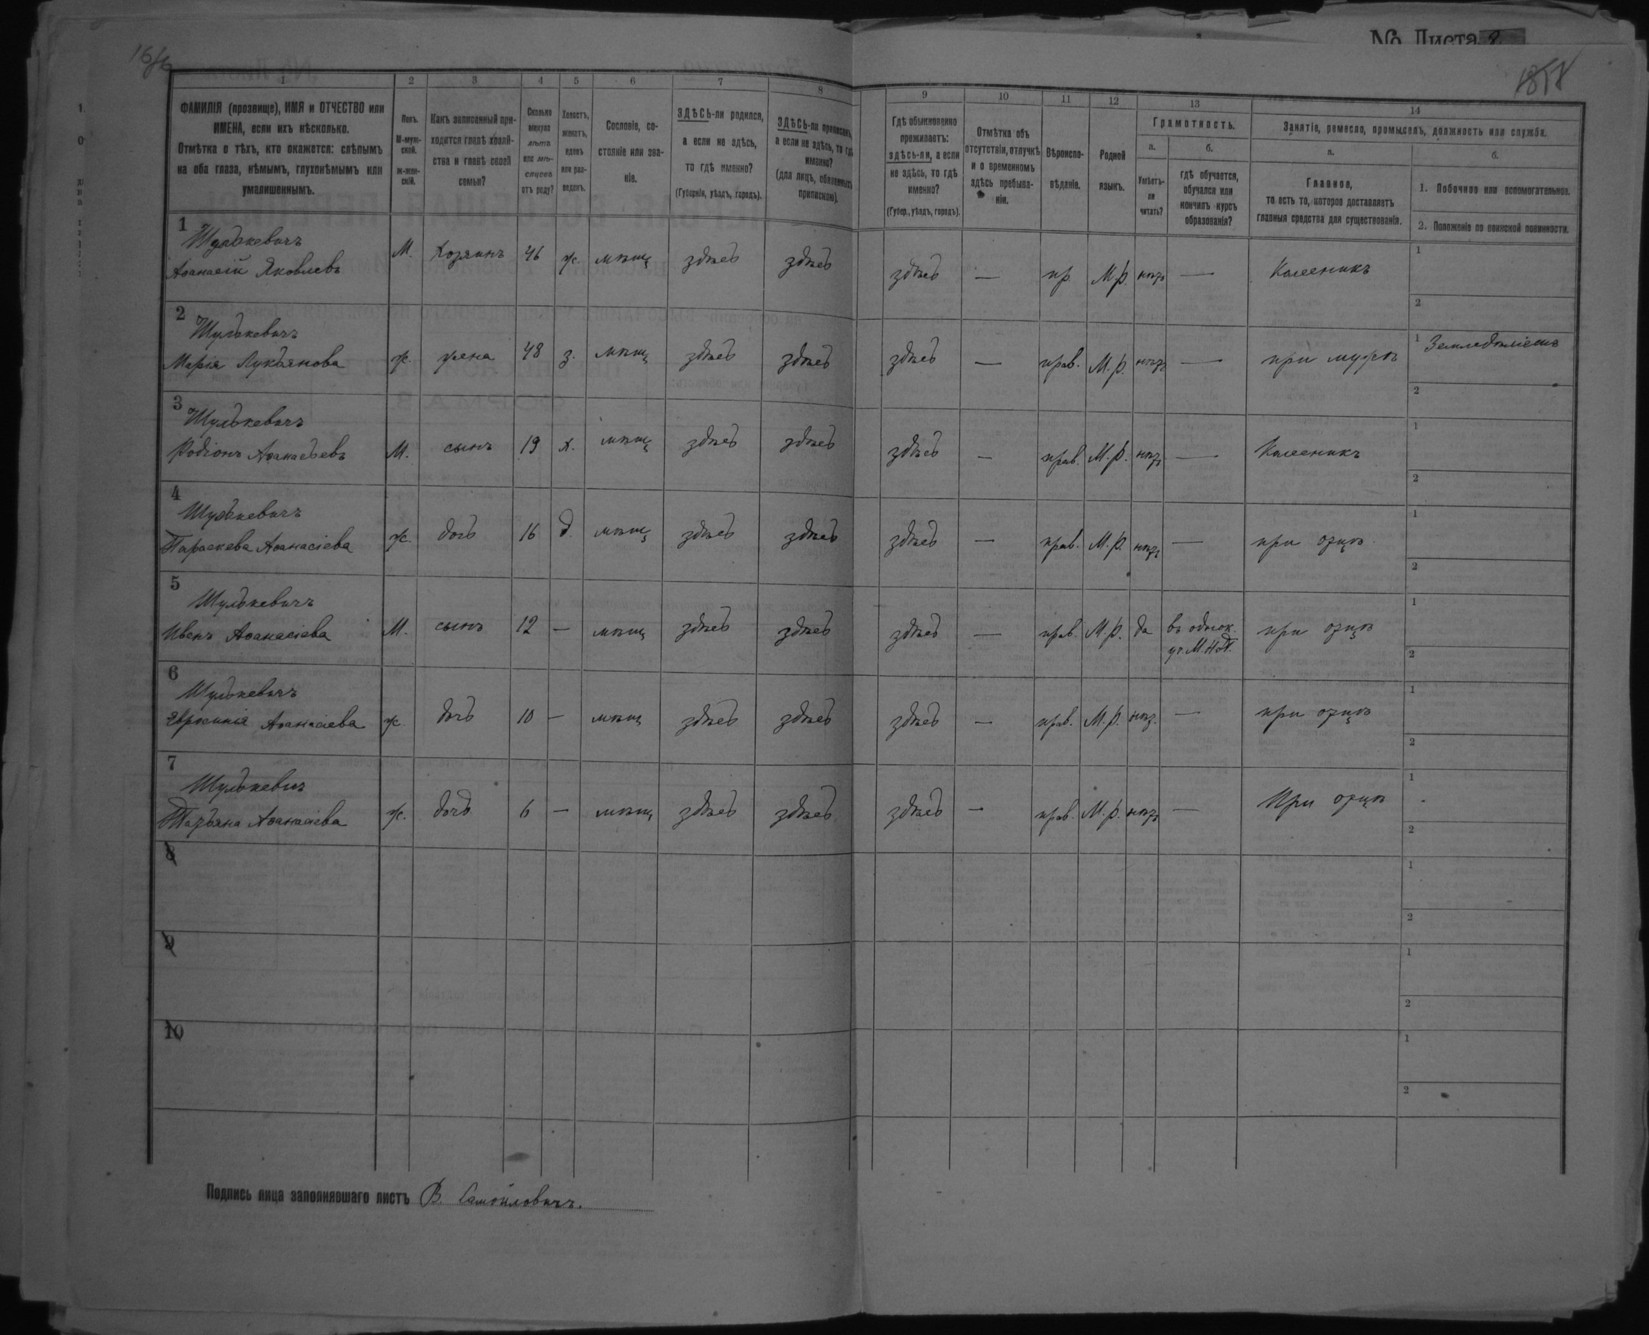 № Листа
1 2 3 4 5 6 7 8 9 10 11 12 13 14
ФАМИЛІЯ (прозвище), ИМЯ и ОТЧЕСТВО или
ИМЕНА, если ихъ нѣсколько.
Отмѣтка о тѣхъ, кто окажется: слѣпымъ
на оба глаза, нѣмымъ, глухонѣмымъ или
умалишеннымъ.
Полъ.
М-муж-
ской.
ж-жен-
скій.
Какъ записанный при-
ходится главѣ хозяй-
ства и главѣ своей
семьи?
Сколько
минуло
лѣтъ
или мѣ-
сяцевъ
отъ роду?
Холостъ,
женатъ,
вдовъ
или раз-
веденъ.
Сословіе, со-
стояніе или зва-
ніе.
ЗДѢСЬ-ли родился,
а если не здѣсь,
то гдѣ именно?
(Губернія, уѣздъ, городъ).
ЗДѢСЬ-ли приписанъ,
а если не здѣсь, то гдѣ
именно?
(для лицъ, обязанныхъ
припискою).
Гдѣ обыкновенно
проживаетъ:
здѣсь-ли, а если
не здѣсь, то гдѣ
именно?
(Губер., уѣздъ, городъ).
Отмѣтка объ
отсутствіи, отлучкѣ
и о временномъ
здѣсь пребыва-
ніи.
Вѣроиспо-
вѣданіе.
Родной
языкъ.
Грамотность.
а. б.
Умѣетъ-
ли
читать?
гдѣ обучается,
обучался или
кончилъ курсъ
образованія?
Занятіе, ремесло, промыселъ, должность или служба.
а. б.
Главное,
то есть то, которое доставляетъ
главныя средства для существованія.
1. Побочное или вспомогательное.
2. Положеніе по воинской повинности.
1
Шулькевичъ
Аѳанасій Яковлевъ М. Хозяинъ 46 ж. мѣщ здѣсь здѣсь здѣсь — пр М.р. нѣтъ — Колесникъ
1
2
2
Шулькевичъ
Марія Лукьянова ж. жена 48 з. мѣщ здѣсь здѣсь здѣсь — прав. М.р. нѣтъ — при мужѣ
1 Земледѣліемъ
2
3
Шулькевичъ
Родіонъ Аѳанасьевъ М. сынъ 19 х. мѣщ здѣсь здѣсь здѣсь — прав. М.р. нѣтъ — Колесникъ
1
2
4
Шулькевичъ
Параскева Аѳанасіева ж дочь 16 д. мѣщ здѣсь здѣсь здѣсь — прав. М.р. нѣтъ — при отцѣ
1
2
5
Шулькевичъ
Иванъ Аѳанасіева М. сынъ 12 — мѣщ здѣсь здѣсь здѣсь — прав. М.р. да въ однок. при отцѣ
1
2
6
Шулькевичъ
Аѳанасіева ж. дочь 10 — мѣщ здѣсь здѣсь здѣсь — прав. М.р. нѣт. — при отцѣ
1
2
7
Шулькевичъ
Татьяна Аѳанасіева ж. дочь 6 — мѣщ здѣсь здѣсь здѣсь — прав. М.р. нѣтъ — При отцѣ
1
2
8
1
2
9
1
2
10
1
2
Подпись лица заполнявшаго листъ В. Самойловичъ.